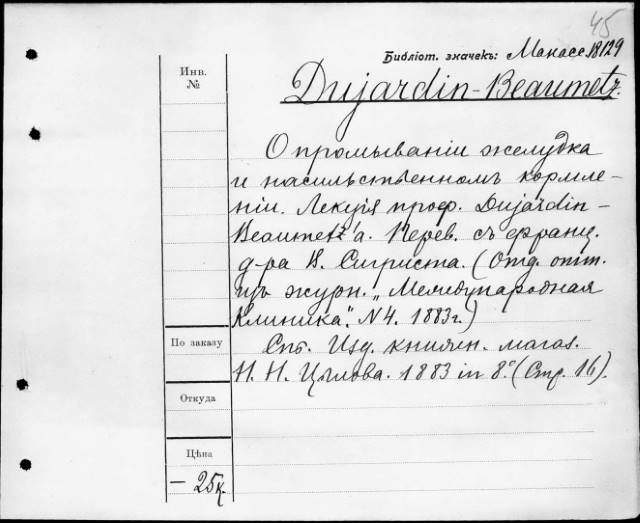 45
Библіот. значекъ: Макасс 18129
Инв.
№
Dujardin-Beaumetz.
О промываніи желудка
и насильственномъ кормле-
ніи. Лекція проф. Dujardin-
Beaumetz'а. Перев. съ франц.
д-ра В. Сигриста. (Отд. отт.
изъ журн. „Международная
Клиника". N 4. 1883 г.)
По заказу
Спб. Изд. книжн. магаз.
Н. Н. Цылова. 1883 in 8.° (Стр. 16).
Откуда
Цѣна
— 25 к.